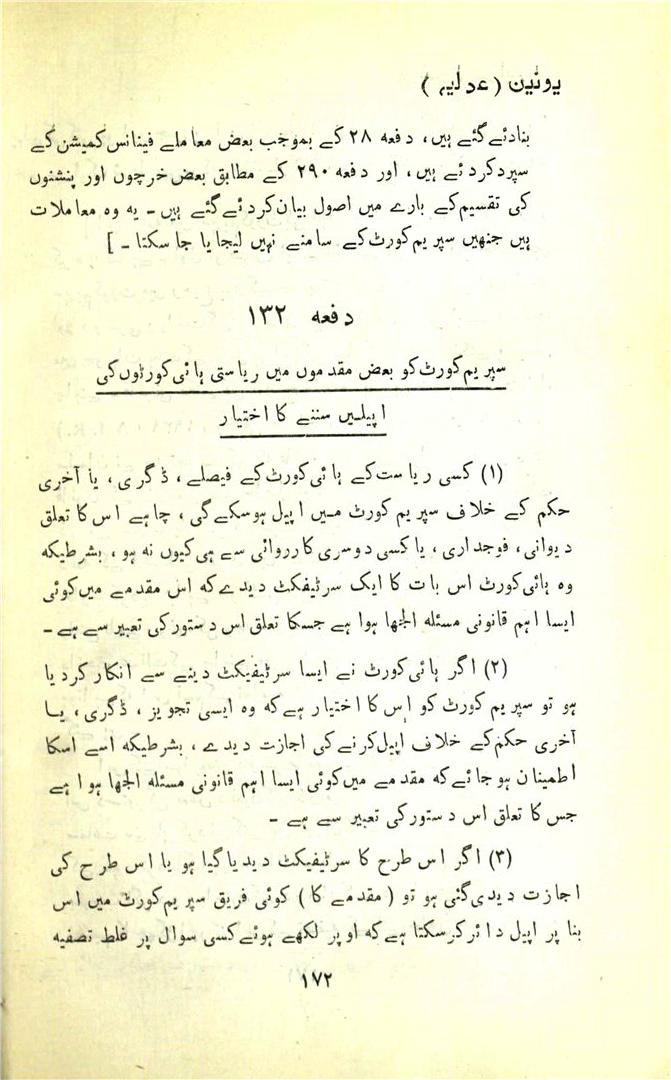 یونین (عدلیہ)
بنادئے گئے ہیں، دفعہ ۲۸ کے بموجب بعض معاملے فینانس کمیشن کے
سپرد کردئے ہیں، اور دفعہ ۲۹۰ کے مطابق بعض خرچوں اور پنشنوں
کی تقسیم کے بارے میں اصول بیان کردئے گئے ہیں ۔ یہ وہ معاملات
ہیں جنھیں سپریم کورٹ کے سامنے نہیں لیجایا جا سکتا ۔ ]
دفعہ ۱۳۲
سپریم کورٹ کو بعض مقدموں میں ریاستی ہائی کورٹوں کی
اپیلیں سننے کا اختیار
(۱) کسی ریاست کے ہائی کورٹ کے فیصلے، ڈگری، یا آخری
حکم کے خلاف سپریم کورٹ میں اپیل ہوسکے گی، چاہے اس کا تعلق
دیوانی، فوجداری، یا کسی دوسری کارروائی سے ہی کیوں نہ ہو، بشرطیکہ
وہ ہائی کورٹ اس بات کا ایک سرٹیفکٹ دیدے کہ اس مقدمے میں کوئی
ایسا اہم قانونی مسئلہ الجھا ہوا ہے جسکا تعلق اس دستور کی تعبیر سے ہے ۔
(۲) اگر ہائی کورٹ نے ایسا سرٹیفیکٹ دینے سے انکار کردیا
ہو تو سپریم کورٹ کو اس کا اختیار ہے کہ وہ ایسی تجویز، ڈگری، یا
آخری حکم کے خلاف اپیل کرنے کی اجازت دیدے، بشرطیکہ اسے اسکا
اطمینان ہوجائے کہ مقدمے میں کوئی ایسا اہم قانونی مسئلہ الجھا ہوا ہے
جس کا تعلق اس دستور کی تعبیر سے ہے ۔
(۳) اگر اس طرح کا سرٹیفکٹ دیدیا گیا ہو یا اس طرح کی
اجازت دیدی گئی ہو تو (مقدمے کا) کوئی فریق سپریم کورٹ میں اس
بنا پر اپیل دائر کرسکتا ہے کہ اوپر لکھے ہوئے کسی سوال پر غلط تصفیہ
۱۷۲